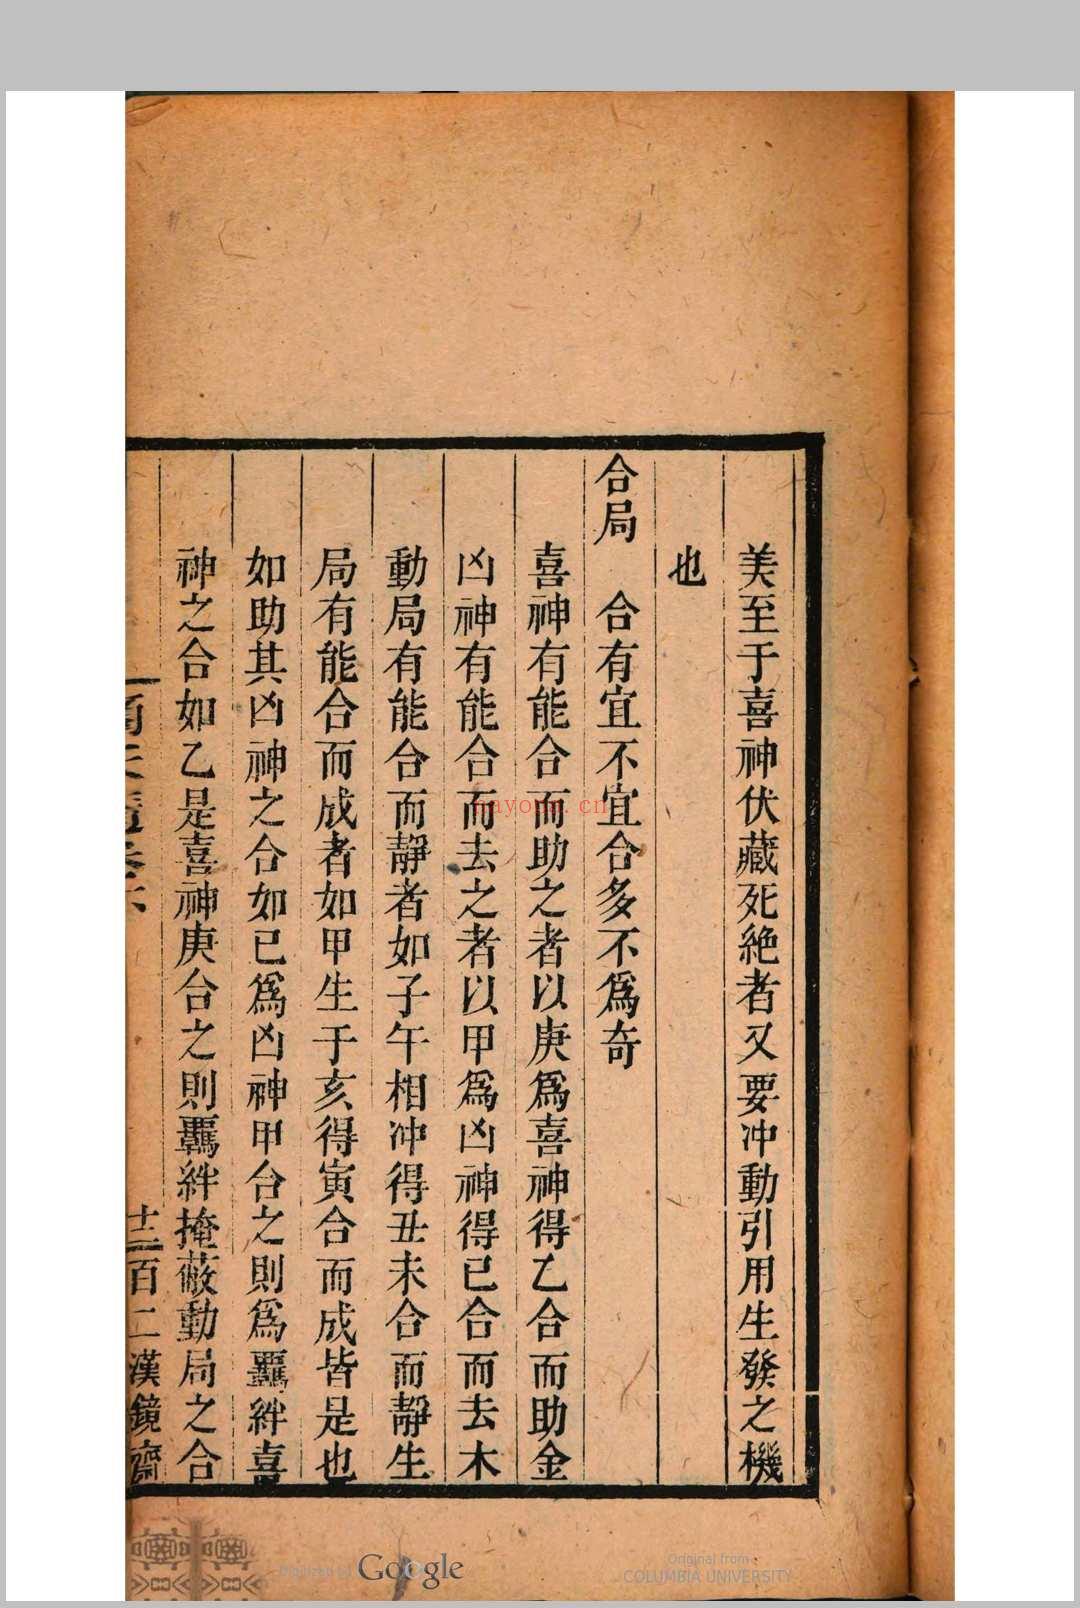 美至于喜神伏藏死絶者又要冲動引用生發之機
也
合局　合有宜不宜合多不為奇
喜神有能合而助之者以庚為喜神得乙合而助金
凶神有能合而去之者以甲為凶神得已合而去木
動局有能合而靜者如子午相冲得丑未合而靜生
局有能合而成者如甲生于亥得寅合而成皆是也
如助其凶神之合如已為凶神甲合之則為羈絆喜
神之合如乙是喜神庚合之則羈絆掩蔽動局之合
十二百二漢鏡齋
nayoua.cn
Digitized by Google
Original from
COLUMBIA UNIVERSITY